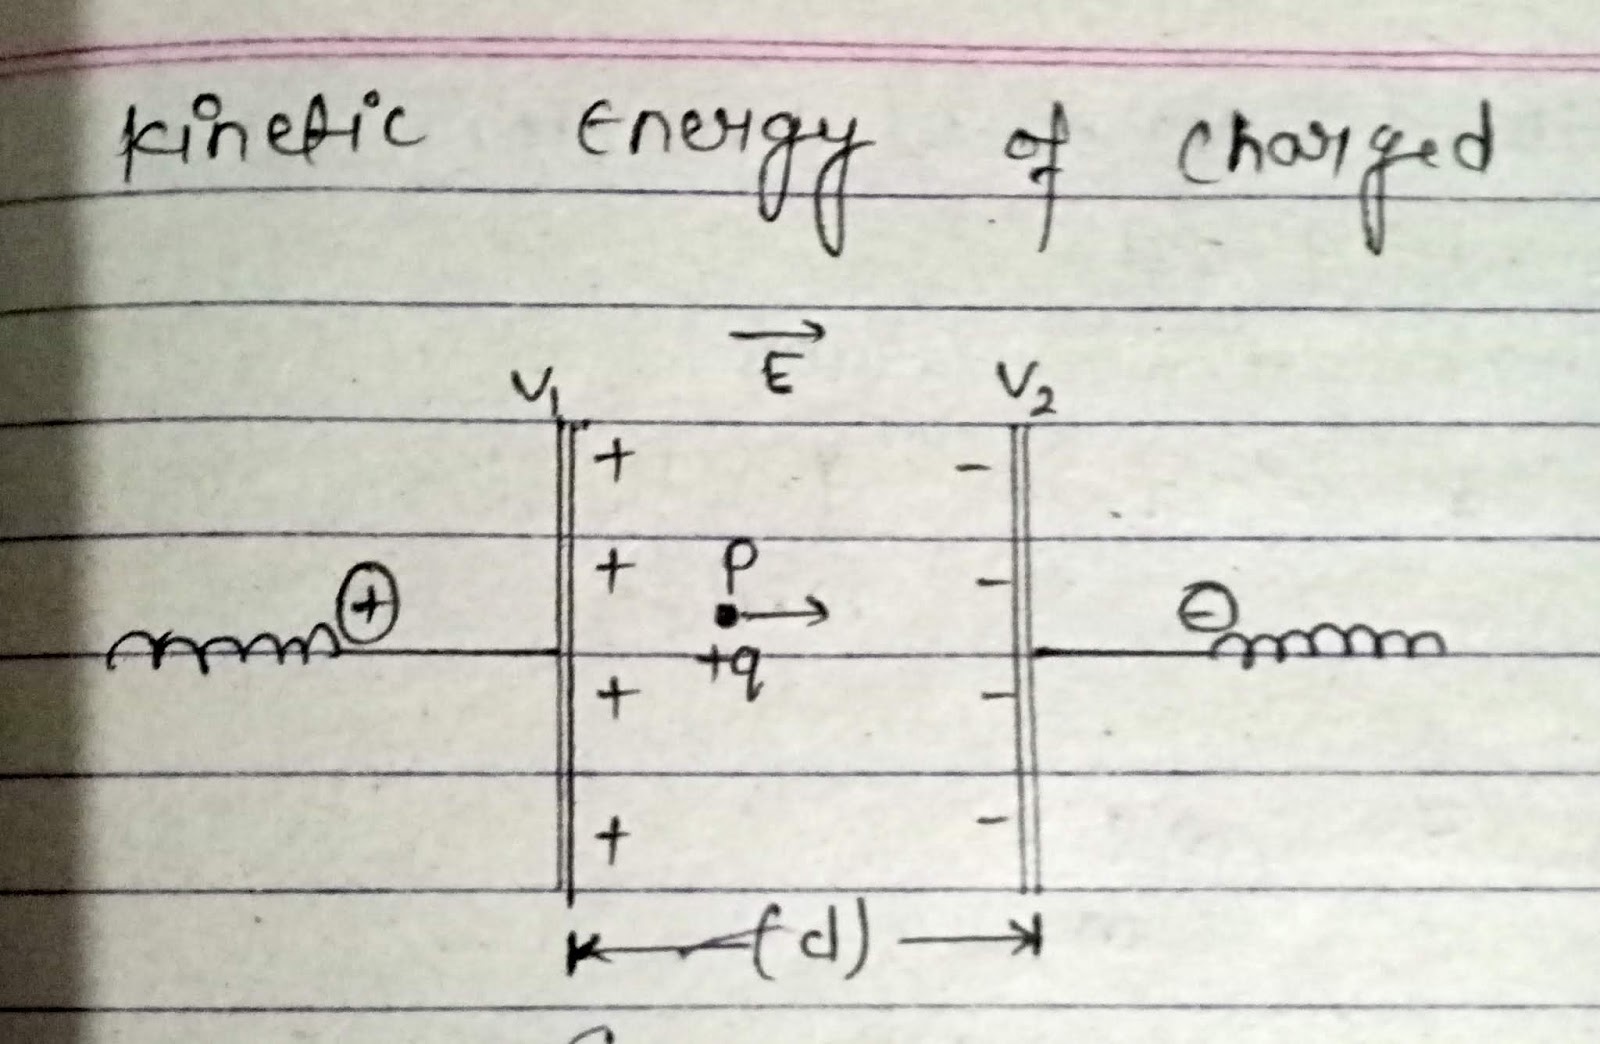 Kinetic Energy of Charged
E
V1 V2
+ -
+ P -
+ -
+q
+ -
+ -
(d)